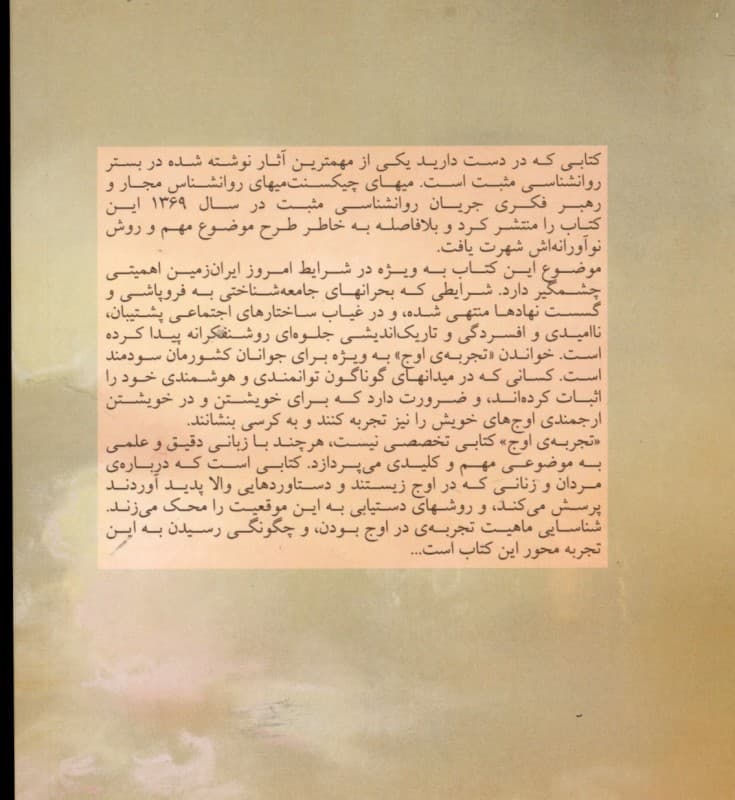 کتابی که در دست دارید یکی از مهمترین آثار نوشته شده در بستر
روانشناسی مثبت است. میهای چیکسنت‌میهای روانشناس مجار و
رهبر فکری جریان روانشناسی مثبت در سال ۱۳۶۹ این
کتاب را منتشر کرد و بلافاصله به خاطر طرح موضوع مهم و روش
نوآورانه‌اش شهرت یافت.
موضوع این کتاب به ویژه در شرایط امروز ایران‌زمین اهمیتی
چشمگیر دارد. شرایطی که بحرانهای جامعه‌شناختی به فروپاشی و
گسست نهادها منتهی شده، و در غیاب ساختارهای اجتماعی پشتیبان،
ناامیدی و افسردگی و تاریک‌اندیشی جلوه‌ای روشنفکرانه پیدا کرده
است. خواندن «تجربه‌ی اوج» به ویژه برای جوانان کشورمان سودمند
است. کسانی که در میدانهای گوناگون توانمندی و هوشمندی خود را
اثبات کرده‌اند، و ضرورت دارد که برای خویشتن و در خویشتن
ارجمندی اوج‌های خویش را نیز تجربه کنند و به کرسی بنشانند.
«تجربه‌ی اوج» کتابی تخصصی نیست، هرچند با زبانی دقیق و علمی
به موضوعی مهم و کلیدی می‌پردازد. کتابی است که درباره‌ی
مردان و زنانی که در اوج زیستند و دستاوردهایی والا پدید آوردند
پرسش می‌کند، و روشهای دستیابی به این موقعیت را محک می‌زند.
شناسایی ماهیت تجربه‌ی در اوج بودن، و چگونگی رسیدن به این
تجربه محور این کتاب است...